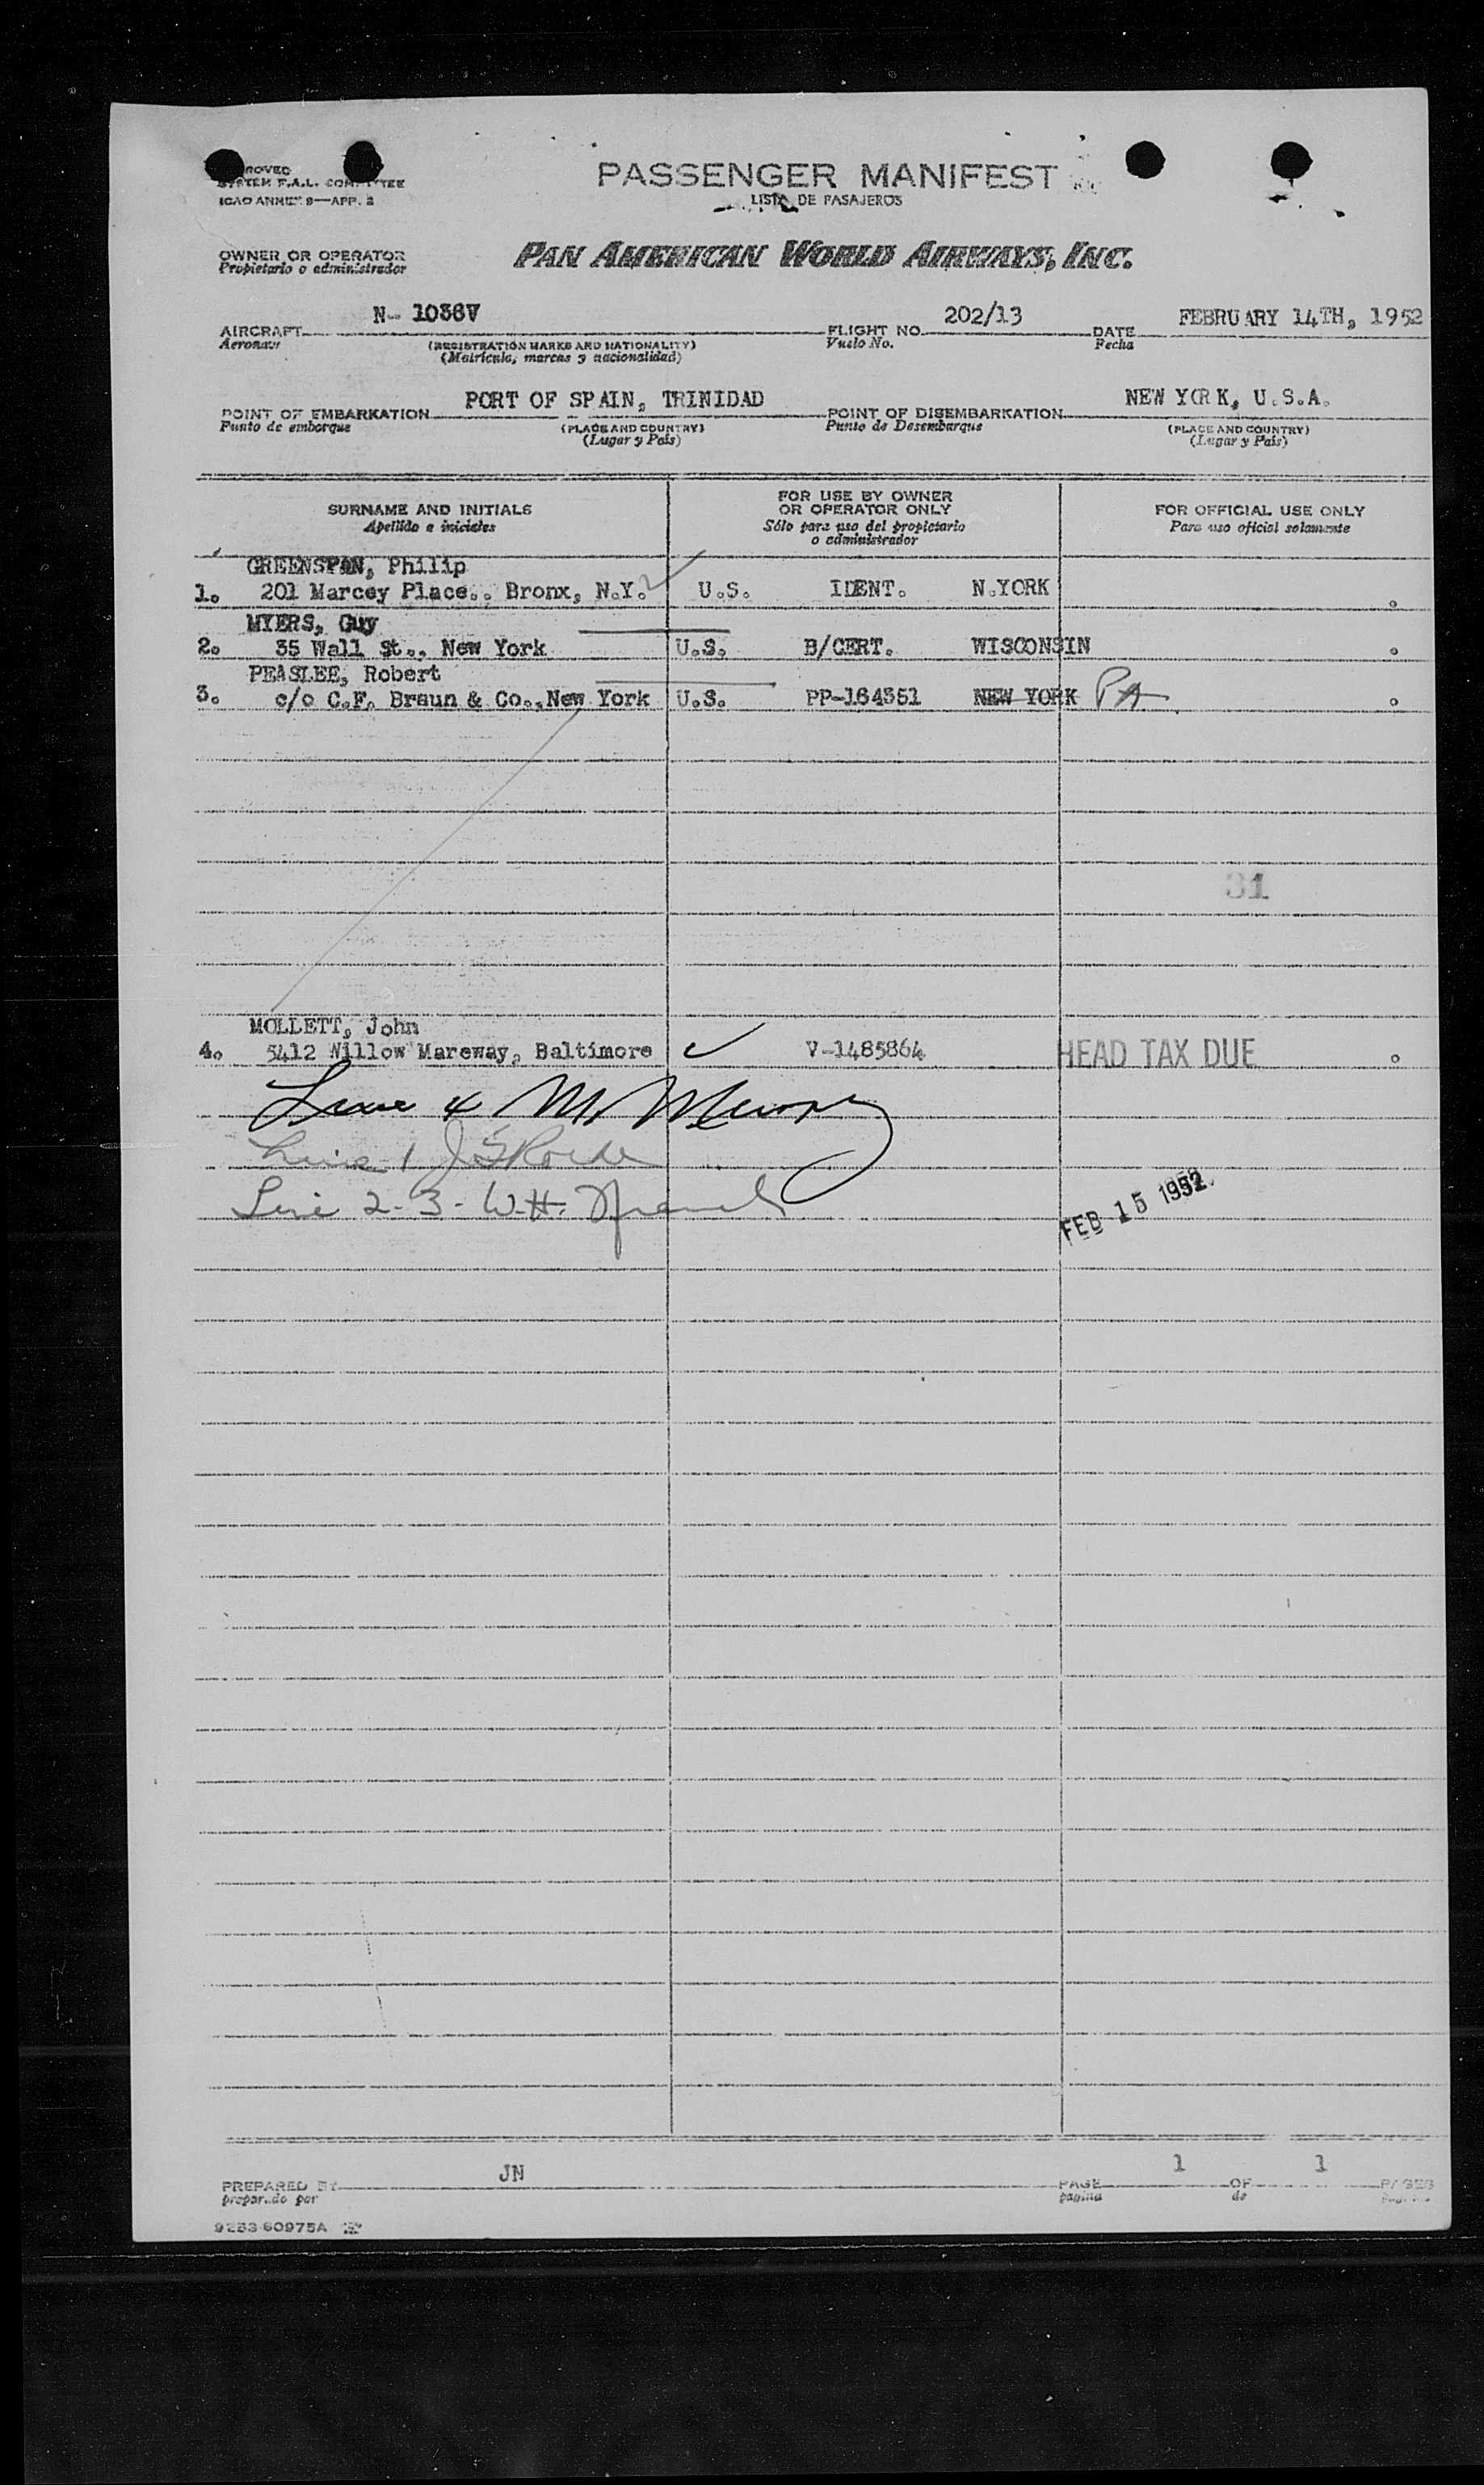 ROVED
SYSTEM F.A.L. COMMITTEE
ICAO ANNEX 9—APP. 2
PASSENGER MANIFEST
LISTA DE PASAJEROS
OWNER OR OPERATOR
Propietario o administrador
PAN AMERICAN WORLD AIRWAYS, INC.
AIRCRAFT N- 1036V FLIGHT NO. 202/13 DATE FEBRUARY 14TH, 1952
Aeronave (REGISTRATION MARKS AND NATIONALITY) Vuelo No. Fecha
(Matrícula, marcas y nacionalidad)
POINT OF EMBARKATION PORT OF SPAIN, TRINIDAD POINT OF DISEMBARKATION NEW YORK, U.S.A.
Punto de emborque (PLACE AND COUNTRY) Punto de Desembarque (PLACE AND COUNTRY)
(Lugar y País) (Lugar y País)
SURNAME AND INITIALS FOR USE BY OWNER OR OPERATOR ONLY FOR OFFICIAL USE ONLY
Apellido e iniciales Sólo para uso del propietario o administrador Para uso oficial solamente
GREENSPAN, Philip
1. 201 Marcey Place.. Bronx, N.Y. U.S. IDENT. N.YORK
MYERS, Guy
2. 35 Wall St., New York U.S. B/CERT. WISCONSIN
PEASLEE, Robert
3. c/o C.F. Braun & Co.,New York U.S. PP-164351 NEW YORK PA
31
MOLLETT, John
4. 5412 Willow Mareway, Baltimore V-1485864 HEAD TAX DUE
Line 4 M
Line 1
Line 2-3- W.H.
FEB 15 1952
PREPARED BY JN PAGE 1 OF 1 PAGES
preparado por pagina de
9253 60975A